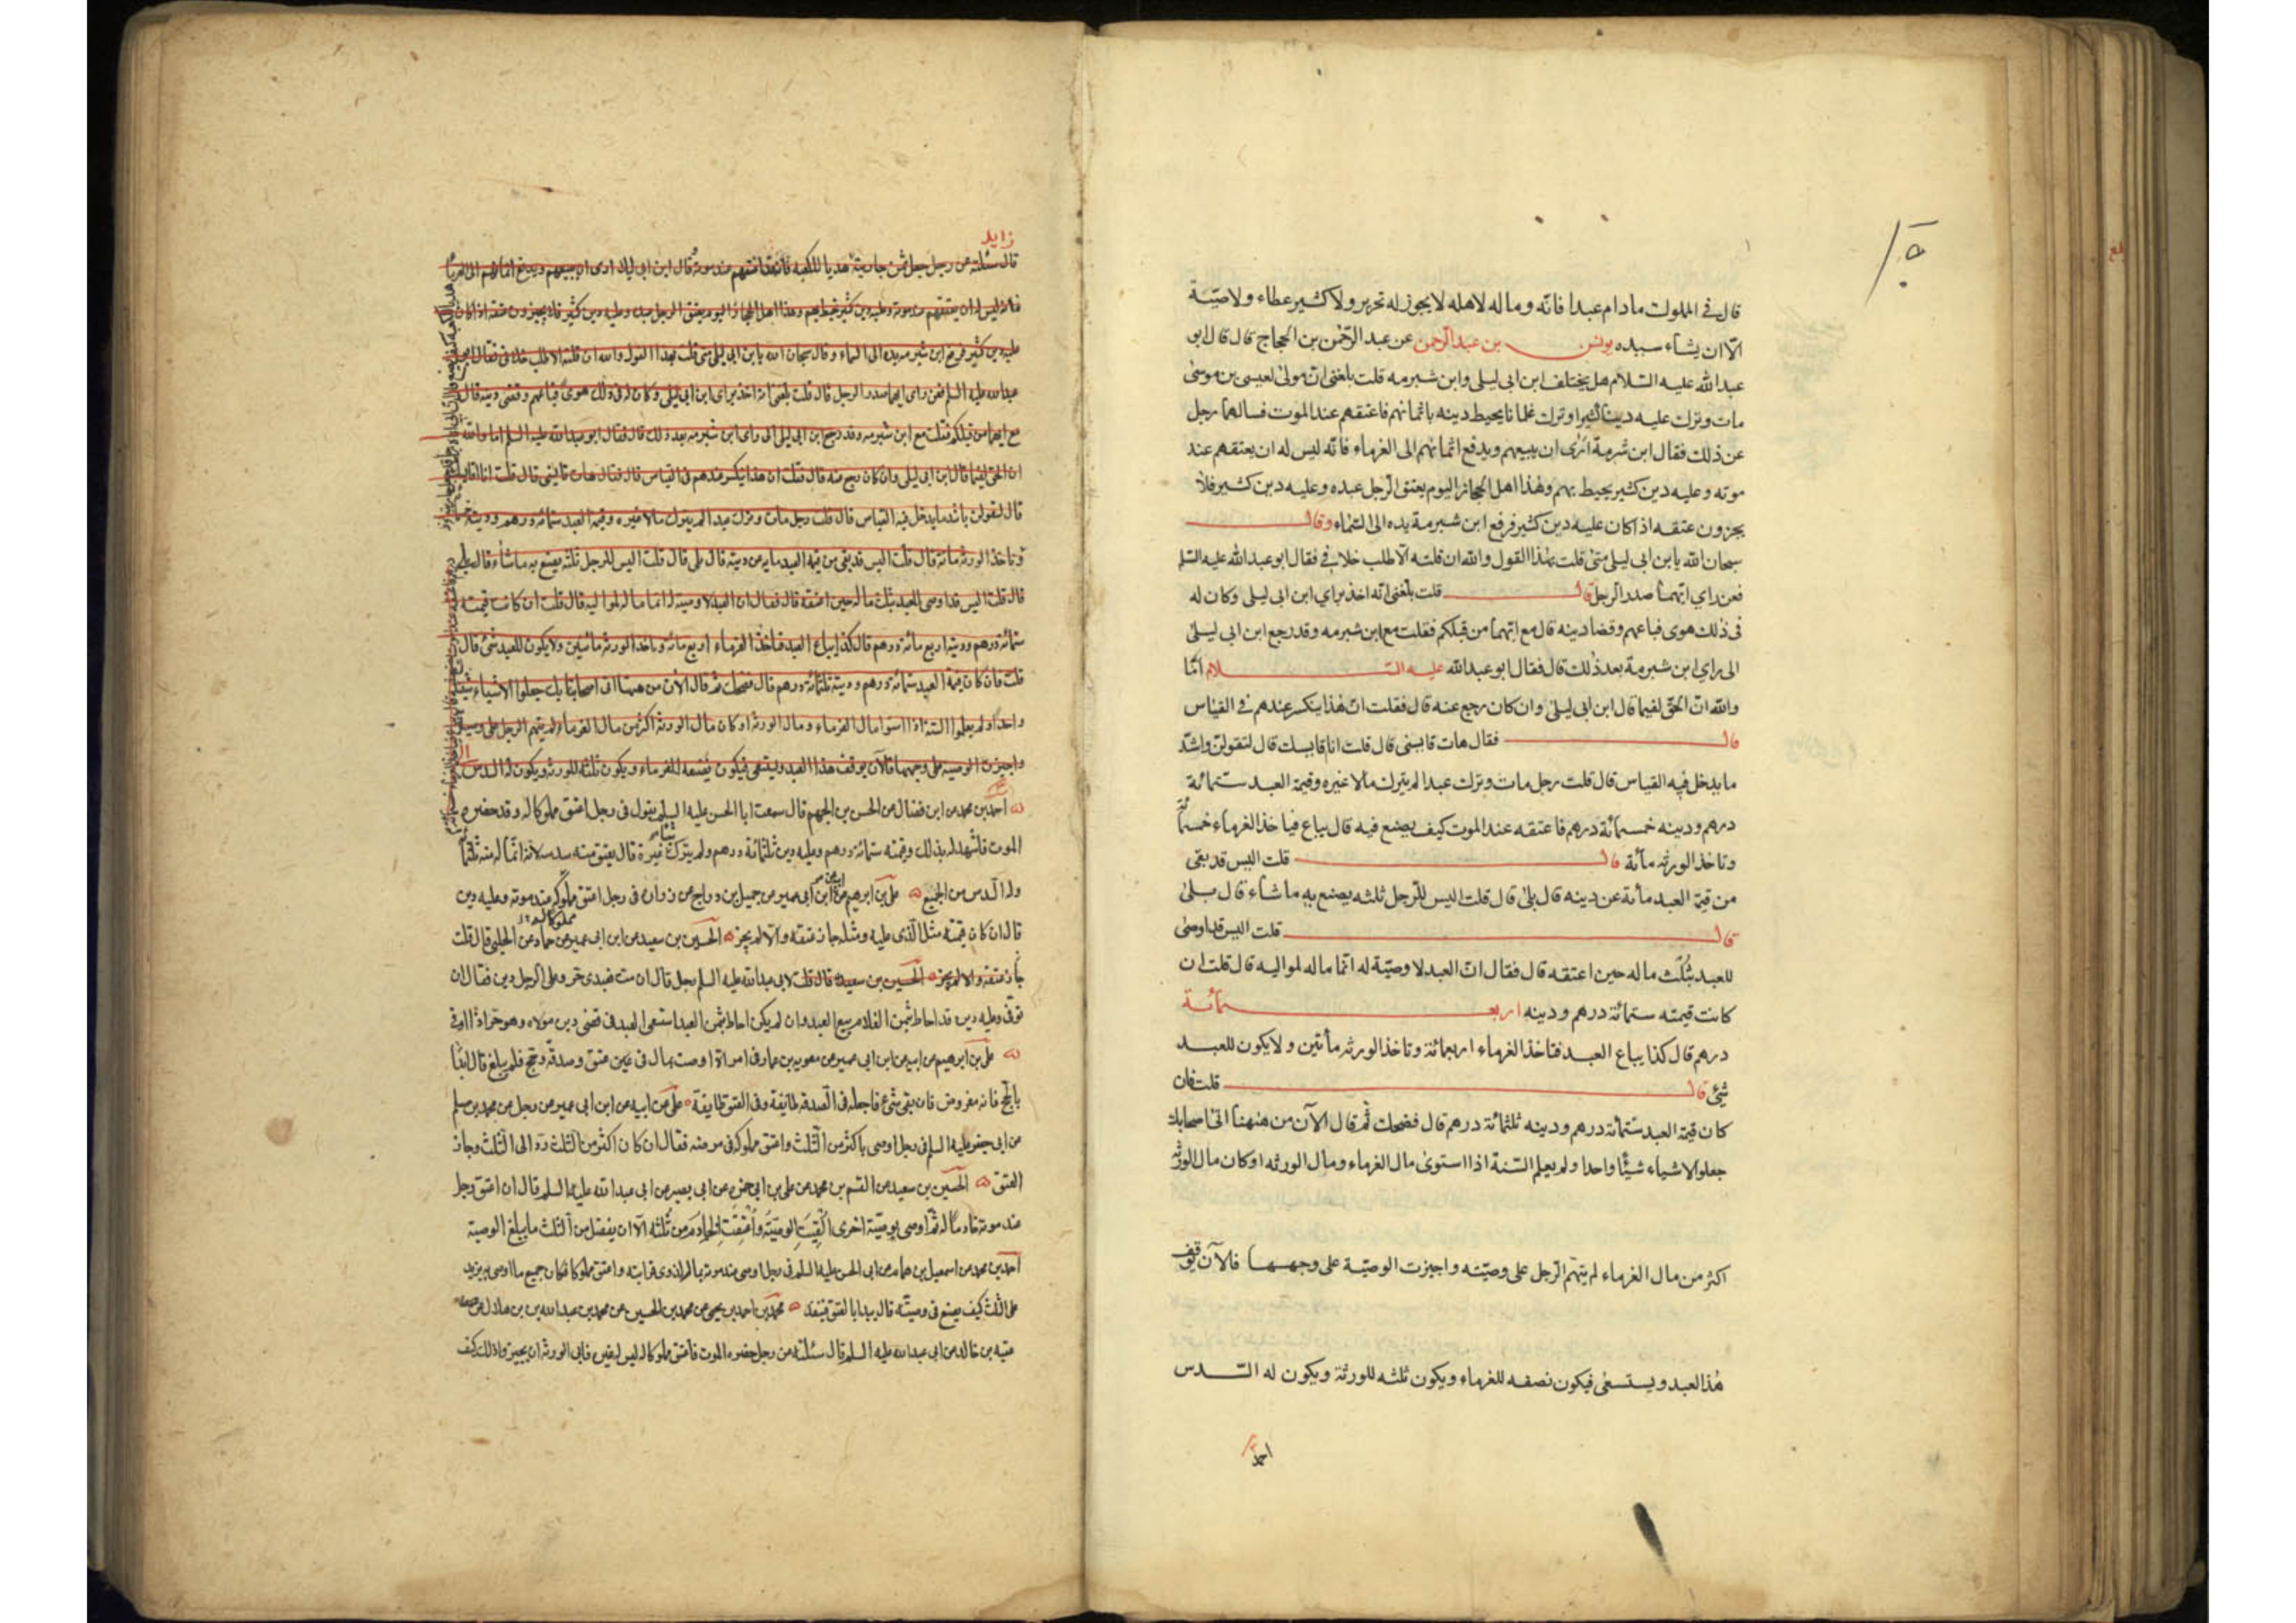 قال في المملوك مادام عبدا فانه وماله لاهله لا يجوز له تحرير ولا كثير عطاء ولا وصيّة
الّا ان يشاء سيده يونس بن عبد الرحمن عن عبد الرّحمٰن بن الحجاج قال قال ابو
عبد الله عليه السّلام هل يختلف ابن ابى ليلى وابن شبرمه قلت بلغنى انّ مولىٰ لعيسى بن موسىٰ
مات وترك عليه دينا كثيرا وترك غلمانا يحيط دينه باثمانهم فاعتقهم عند الموت فسالهما رجل
عن ذلك فقال ابن شبرمة ارى ان يبيعهم ويدفع اثمانهم الى الغرماء فانّه ليس له ان يعتقهم عند
موته وعليه دين كثير يحيط بهم وهٰذا اهل الحجاز اليوم يعتق الرّجل عبده وعليه دين كثير فلا
يجزون عتقه اذا كان عليه دين كثير فرفع ابن شبرمة يده الى السّماء وقال
سبحان الله يابن ابى ليلى متىٰ قلت بهٰذا القول والله ان قلته الّا طلب خلافى فقال ابو عبد الله عليه السّلم
فعن راي ايّهما صدر الرجل قال قلت بلغنى انّه اخذ براي ابن ابى ليلى وكان له
فى ذلك هوى فباعهم وقضا دينه قال مع ايّهما من قبلكم فقلت مع ابن شبرمه وقد رجع ابن ابى ليلىٰ
الى راي ابن شبرمة بعد ذلك قال فقال ابو عبد الله عليه السلام امّا
والله انّ الحقّ لفيما قال ابن ابى ليلىٰ وان كان رجع عنه قال فقلت انّ هٰذا ينكسر عندهم فى القياس
قال فقال هات قايسنى قال قلت انا قايسك قال لتقولنّ واشدّ
ما يدخل فيه القياس قال قلت رجل مات وترك عبدا لم يترك مالا غيره وقيمة العبد ستمائة
درهم ودينه خمسمائة درهم فاعتقه عند الموت كيف يصنع فيه قال يباع فياخذ الغرماء خمسمائة
وتاخذ الورثه مأئة قال قلت اليس قد بقى
من قيمة العبد مأئة عن دينه قال بلىٰ قال قلت اليس للرّجل ثلثه يصنع به ما شاء قال بلىٰ
قال قلت اليس قد اوصىٰ
للعبد بثُلث ماله حين اعتقه قال فقال انّ العبد لا وصيّة له انّما ماله لمواليه قال قلت ان
كانت قيمته ستمائة درهم ودينه اربعمائة
درهم قال كذا يباع العبد فتاخذ الغرماء اربعمائة وتاخذ الورثه مأتين ولا يكون للعبد
شئ قال قلت فان
كان قيمة العبد ستمائة درهم ودينه ثلثمائة درهم قال فضحك ثمّ قال الآن من هٰهنا اتىٰ اصحابك
جعلوا الاشياء شيئًا واحدا ولم يعلم السّنة اذا استوىٰ مال الغرماء ومال الورثه او كان مال الورثه
اكثر من مال الغرماء لم يتهم الرّجل على وصيّته واجيزت الوصيّة على وجهها فالآن يوقف
هٰذا العبد ويستسعى فيكون نصفه للغرماء ويكون ثلثه للورثة ويكون له السّدس
احمد
زايد
قال سئلته عن رجل جعل ثمن جاريته هديا للكعبة عند موته قال ابن ابى ليلى ارى ان يبيعهم ويدفع اثمانهم الى الغرماء
فانه ليس له ان يعتقهم عند موته وعليه دين كثير يحيط بهم وهذا اهل الحجاز اليوم يعتق الرجل عبده وعليه دين كثير فلا يجيزون عتقه اذا كان
عليه دين كثير فرفع ابن شبرمه يده الى السماء وقال سبحان الله يا بن ابى ليلى متى قلت بهذا القول والله ان قلته الا طلب خلافى فقال ابو
عبد الله عليه السلم فعن راى ايهما صدر الرجل قال قلت بلغنى انه اخذ براى ابن ابى ليلى وكان له فى ذلك هوى فباعهم وقضى دينه قال
مع ايهما من قبلكم قلت مع ابن شبرمه وقد رجع ابن ابى ليلى الى راى ابن شبرمه بعد ذلك قال فقال ابو عبد الله عليه السلم اما والله
ان الحق لفيما قال ابن ابى ليلى وان كان رجع عنه قال قلت ان هذا ينكسر عندهم فى القياس قال فقال هات قايسنى قال قلت انا اقايسك
قال لتقولن باشد ما يدخل فيه القياس قال قلت رجل مات وترك عبدا لم يترك مالا غيره وقيمة العبد ستمائة درهم ودينه
وتاخذ الورثه مائة قال قلت اليس قد بقى من قيمة العبد مايه عن دينه قال بلى قال قلت اليس للرجل ثلثه يصنع به ما شاء قال بلى
قال قلت اليس قد اوصى للعبد بثلث ماله حين اعتقه قال فقال ان العبد لا وصيته له انما ماله لمواليه قال قلت ان كانت قيمته
ستمائة درهم ودينه اربع مائة درهم قال كذا يباع العبد فتاخذ الغرماء اربع مائة وياخذ الورثه مائتين ولا يكون للعبد شئ قال
قلت فان كان قيمة العبد ستمائة درهم ودينه ثلثمائة درهم قال فضحك ثم قال الان من هيهنا اتى اصحابك جعلوا الاشياء شيئا
واحدا ولم يعلموا السنة اذا استوا مال الغرماء ومال الورثه او كان مال الورثه اكثر من مال الغرماء لم يتهم الرجل على وصيته
واجيزت الوصيه على وجهها فالآن يوقف هذا العبد ويستسعى فيكون نصفه للغرماء ويكون ثلثه للورثه ويكون له السدس
احمد بن محمد عن ابن فضال عن الحسن بن الجهم قال سمعت ابا الحسن عليه السلم يقول فى رجل اعتق مملوكا له وقد حضره
الموت فاشهد له بذلك وقيمته ستمائة درهم وعليه دين ثلثمائة درهم ولم يترك شيئا غيره قال يعتق منه سدسه لانه انما له منه ثلثمائة
وله السّدس من الجميع علىّ بن ابرهيم عن ابيه عن ابن ابى عمير عن جميل بن دراج عن زرارة فى رجل اعتق مملوكه عند موته وعليه دين
قال ان كان قيمته مثل الّذى عليه ومثله جاز عتقه والّا لم يجز الحسين بن سعيد عن ابن ابى عمير عن حماد عن الحلبى قال قلت
جاز عتقه والا لم يجز الحسين بن سعيد قال قلت لابى عبد الله عليه السلم رجل قال ان مت فعبدى حر وعلى الرجل دين فقال ان
توفى وعليه دين قد احاط بثمن الغلام بيع العبد وان لم يكن احاط بثمن العبد استسعى العبد فى قضى دين مولاه وهو حر اذا اوفى
علىّ بن ابرهيم عن ابيه عن ابن ابى عمير عن معويه بن عمار فى امراة اوصت بمال فى عتق وصدقة وحج فلم يبلغ قال ابدأ
بالحج فانه مفروض فان بقى شئ فاجعله فى الصدقه طايفة وفى العتق طايفة علىّ عن ابيه عن ابن ابى عمير عن رجل عن محمد بن مسلم
عن ابى جعفر عليه السلم فى رجل اوصى باكثر من الثّلث واعتق مملوكه فى مرضه فقال ان كان اكثر من الثّلث ردّ الى الثّلث وجاز
العتق الحسين بن سعيد عن القسم بن محمد عن على بن ابى حمزه عن ابى بصير عن ابى عبد الله عليه السلم قال ان اعتق رجل
عند موته خادما له ثمّ اوصى بوصيّة اخرى القيت الوصيّة واعتقت الخادم من ثلثه الّا ان يفضل من الثلث ما يبلغ الوصية
احمد بن محمد عن اسمعيل بن همام عن ابى الحسن عليه السلم فى رجل اوصى عند موته بمال لذوى قرابته واعتق مملوكا فكان جميع ما اوصى به يزيد
على الثلث كيف يصنع فى وصيته قال يبدا بالعتق فينفذ محمد بن احمد بن يحيى عن محمد بن الحسين عن محمد بن عبد الله بن هلال عن
عقبه بن خالد عن ابى عبد الله عليه السلم قال سئلته عن رجل حضره الموت فاعتق مملوكا له ليس له غيره فابى الورثه ان يجيزوا ذلك كيف